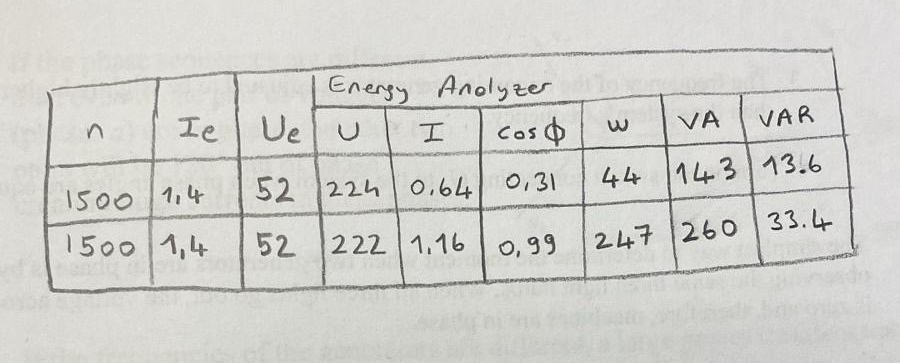 Energy Analyzer
n Ie Ue U I cosϕ W VA VAR
1500 1,4 52 224 0,64 0,31 44 143 13.6
1500 1,4 52 222 1,16 0,99 247 260 33.4